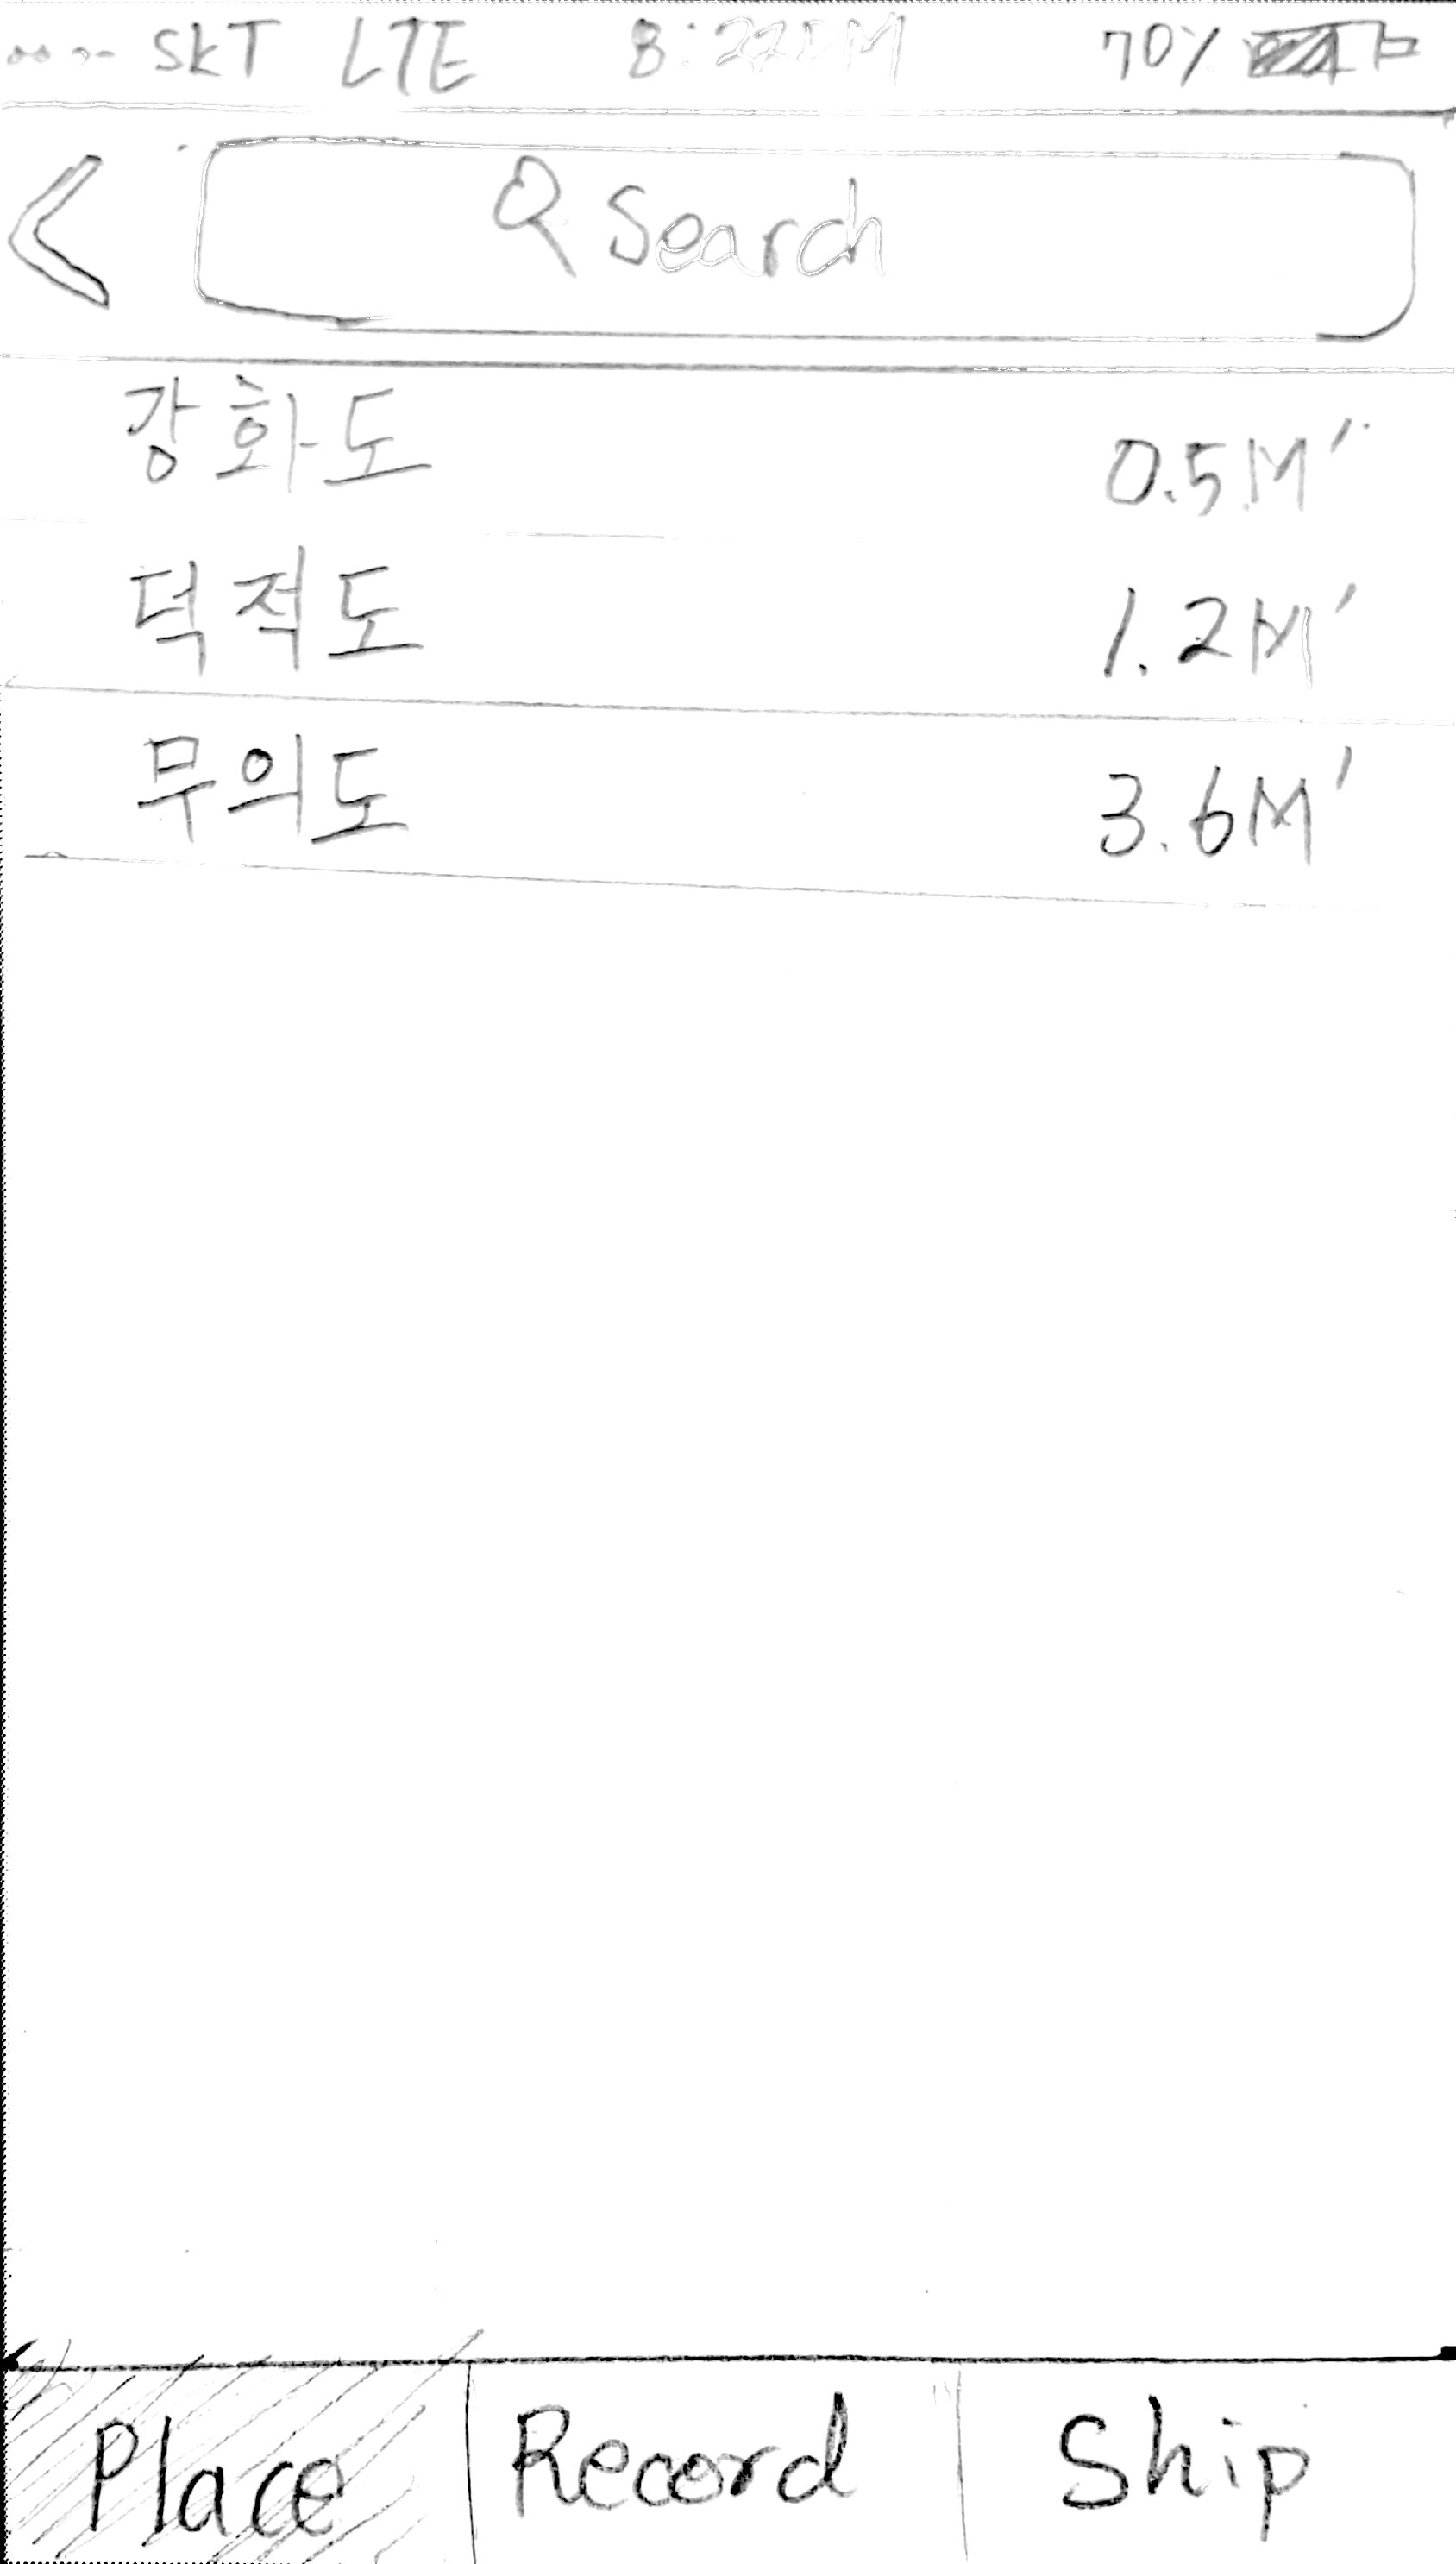 SKT LTE 8:22PM 70%
Search
강화도 0.5M'
덕적도 1.2M'
무의도 3.6M'
Place Record Ship